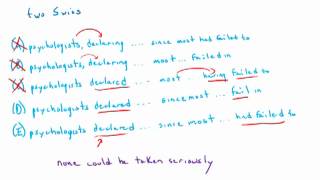 two Swiss
(A) psychologists, declaring .... since most had failed to
(B) psychologists, declaring .... most .. failed in
(C) psychologists declared .... most .. having failed to
(D) psychologists declared .... since most ... fail in
(E) psychologists declared ... since most ... had failed to
none could be taken seriously